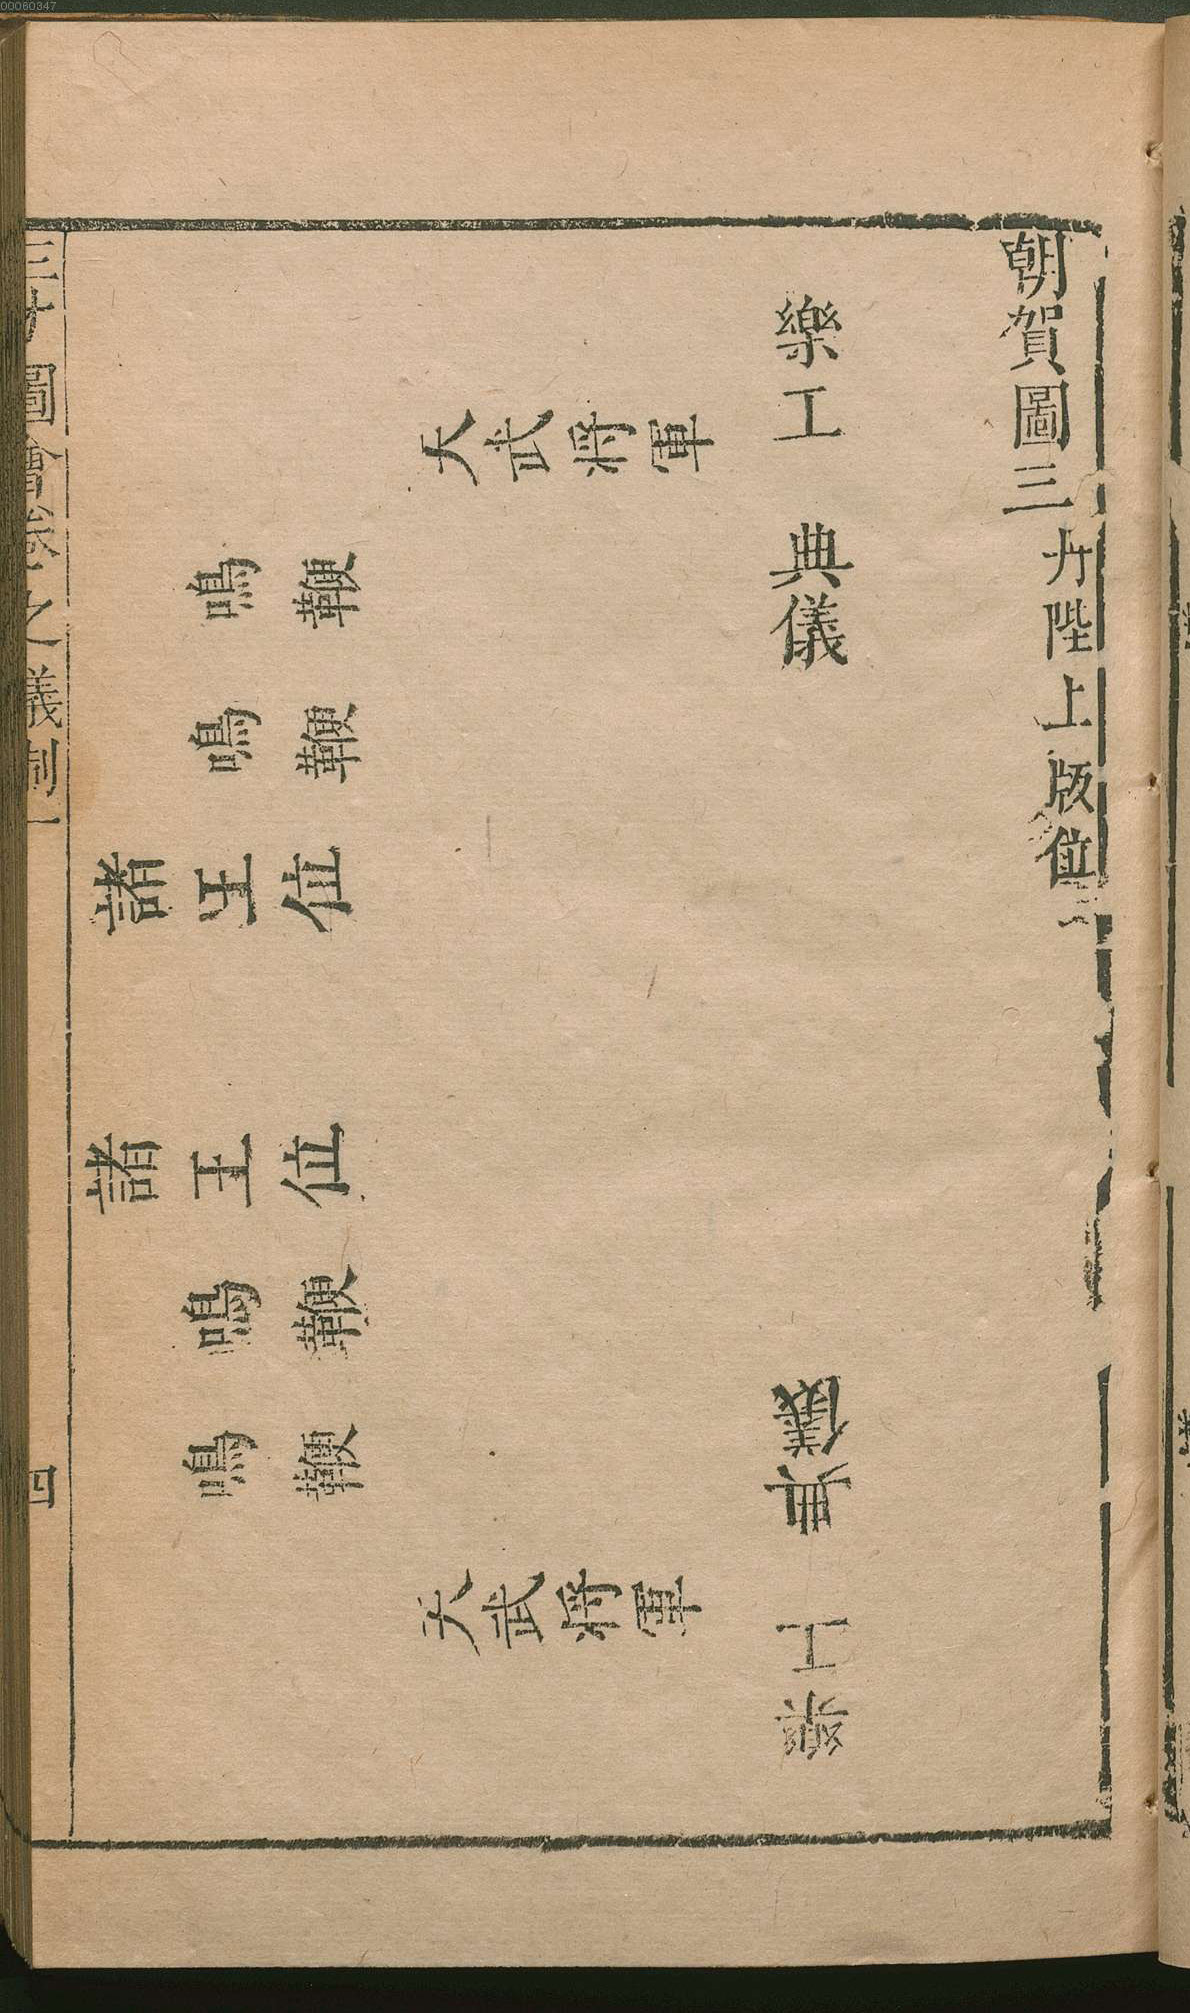 00060347
朝賀圖三丹陛上版位三
樂工
典儀
典儀
樂工
天武將軍
天武將軍
鳴鞭
鳴鞭
諸王位
諸王位
鳴鞭
鳴鞭
三才圖會卷之儀制一
四